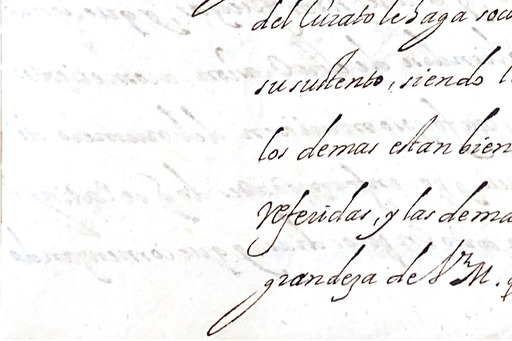 del Curato le haga soco
su sustento, siendo l
los demas estan bien
referidas, y las dema
grandeza de V. M. q